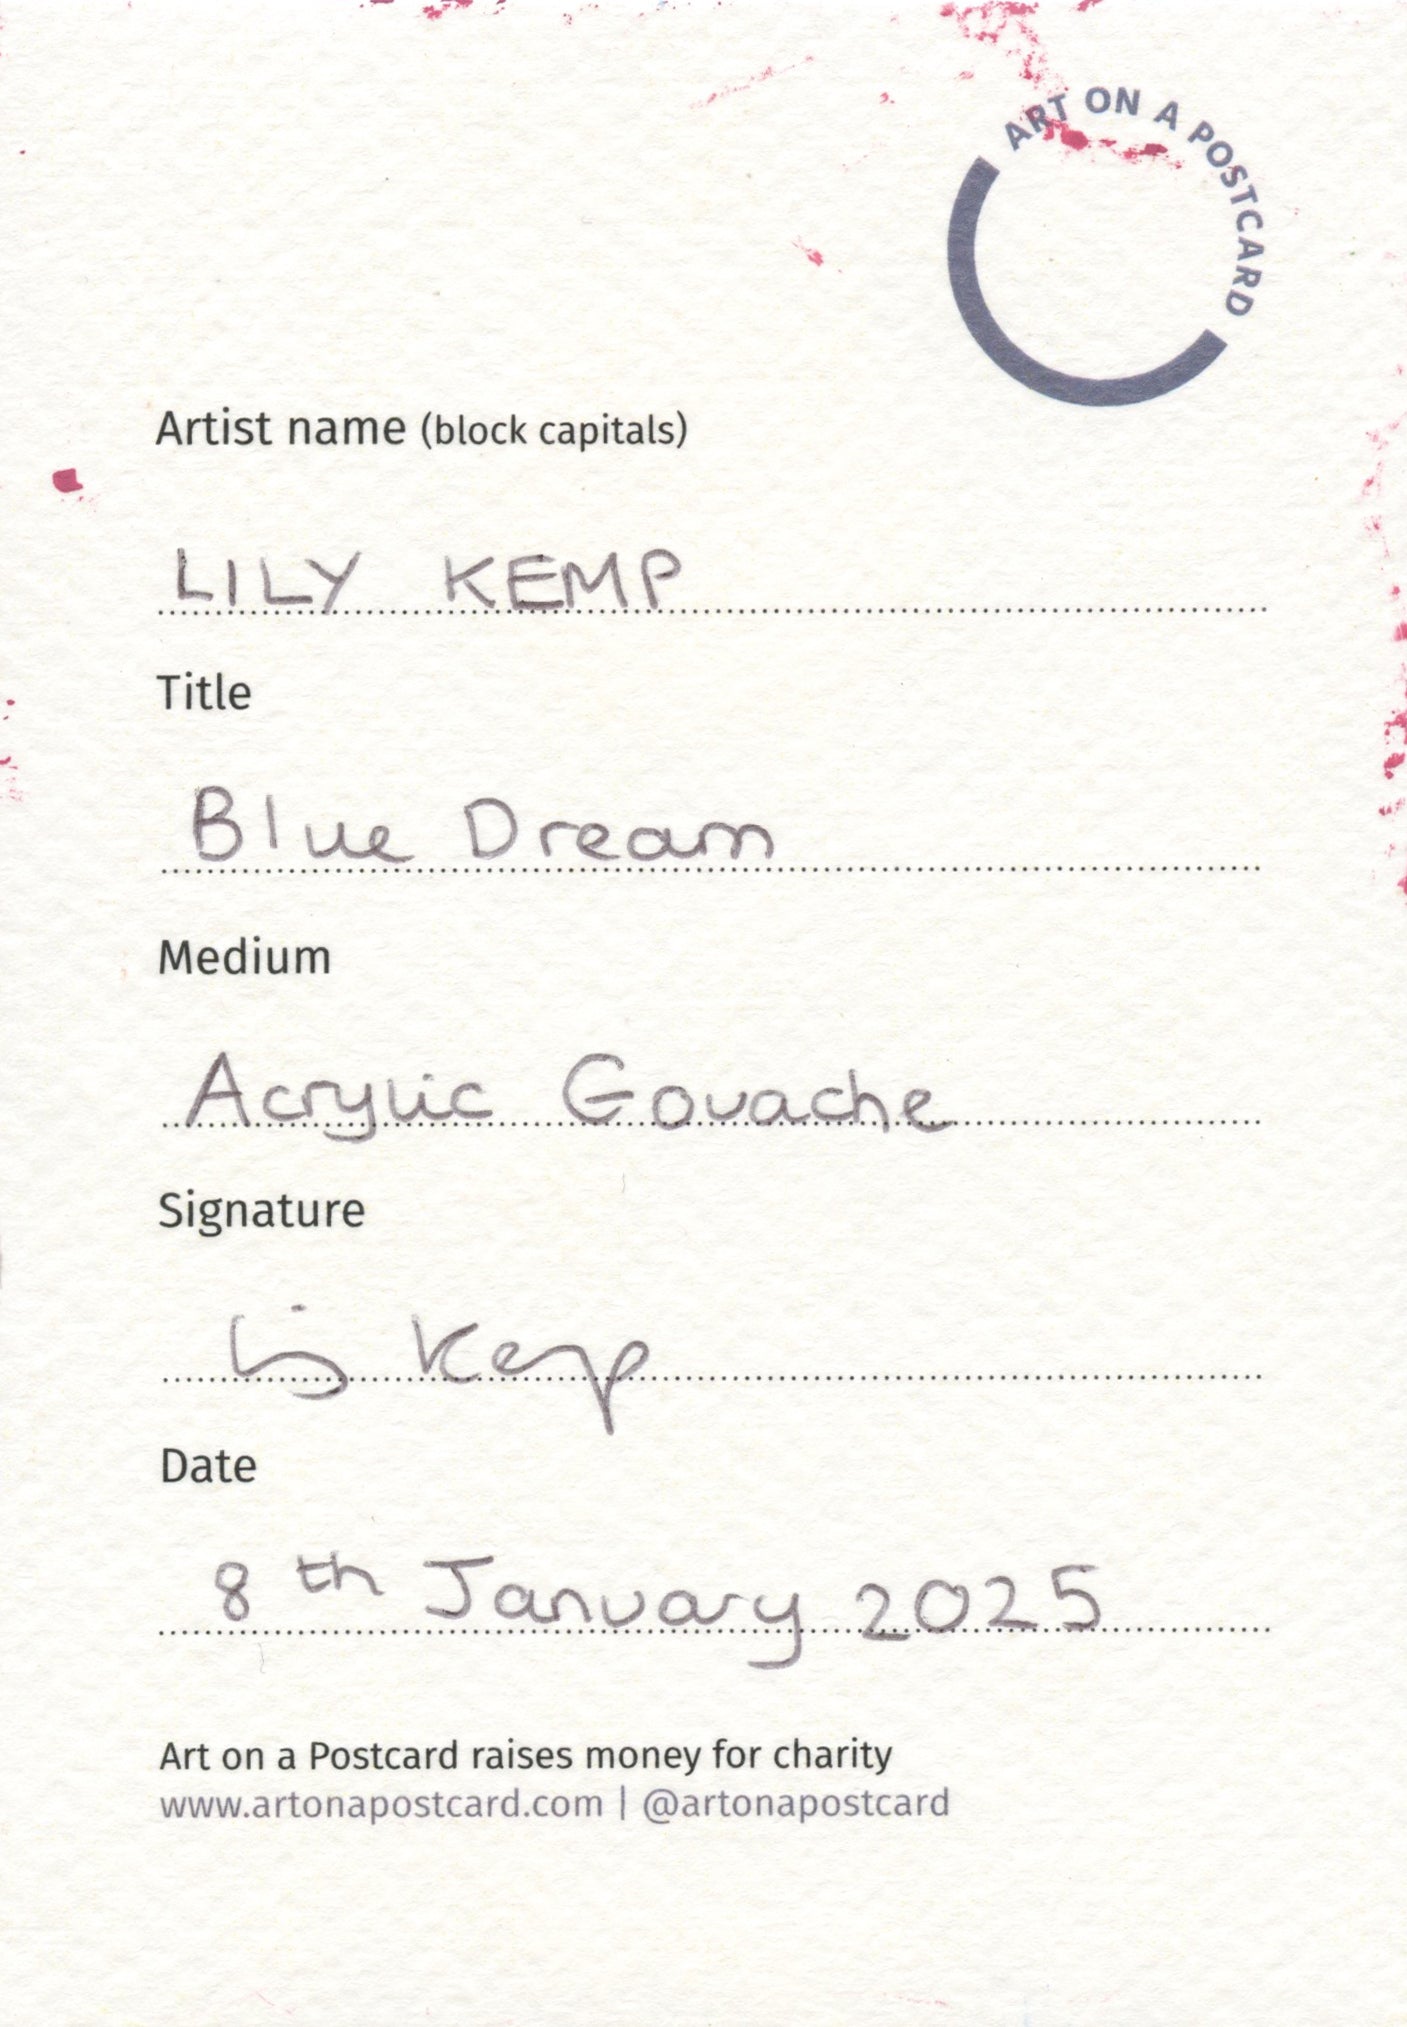 ART ON A POSTCARD
Artist name (block capitals)
LILY KEMP
Title
Blue Dream
Medium
Acrylic Gouache
Signature
Lily Kemp
Date
8th January 2025
Art on a Postcard raises money for charity
www.artonapostcard.com | @artonapostcard